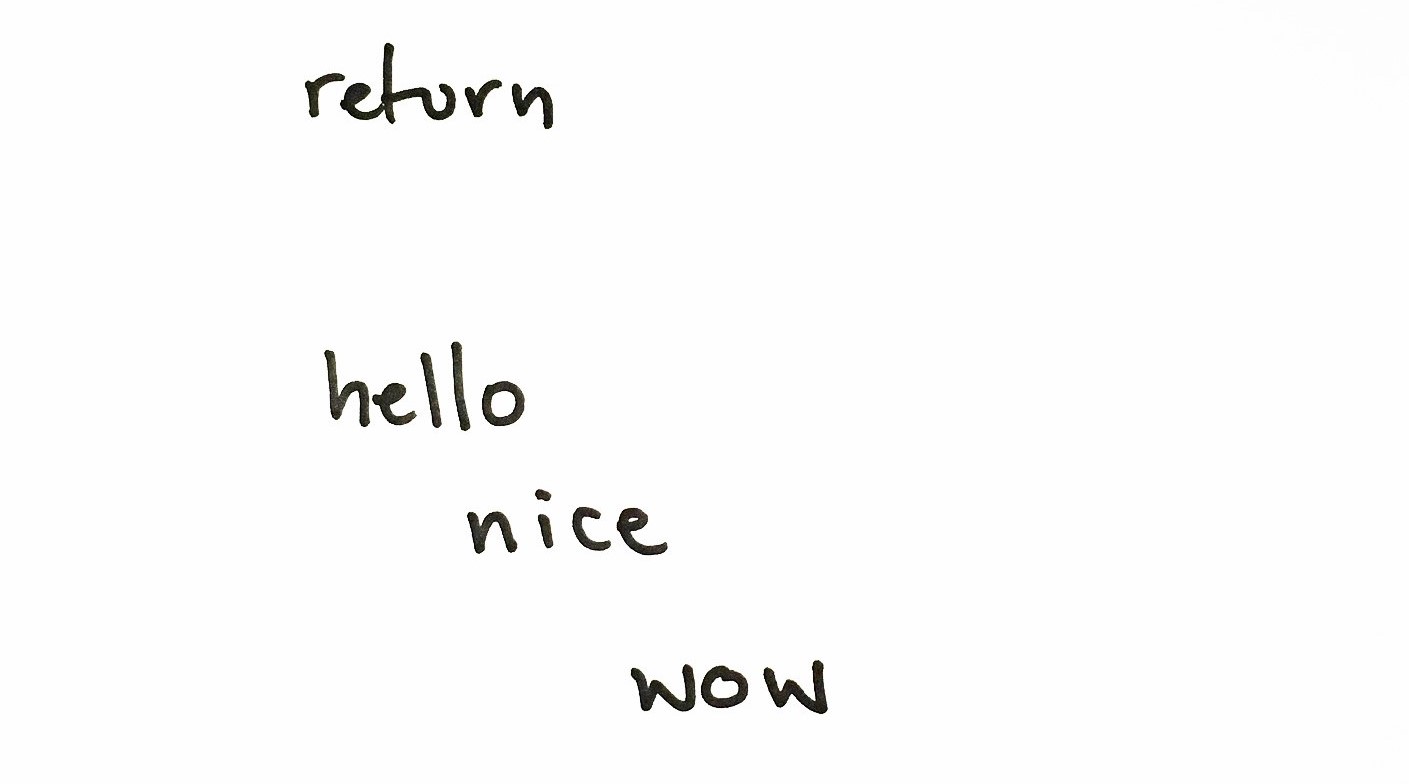 return
hello
nice
wow